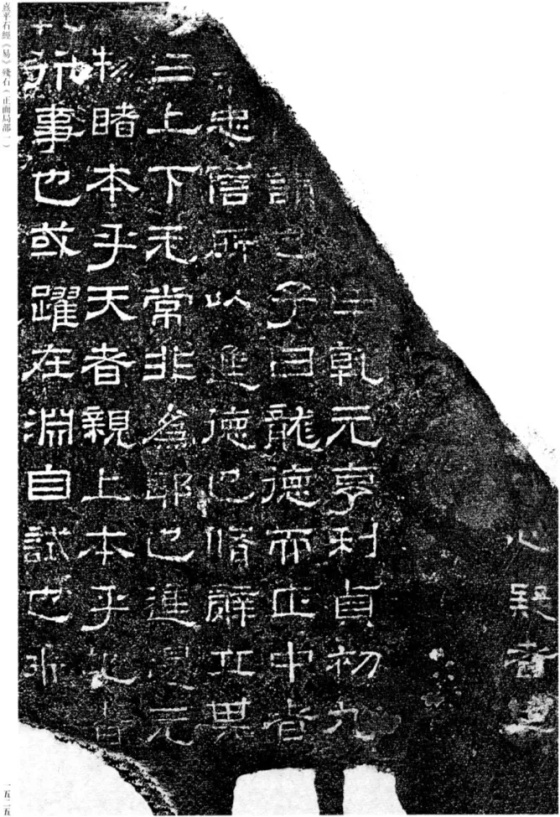 心疑者其
乾元亨利貞初九
謂也子曰龍德而正中者
忠信所以進德也脩辭立其
上下无常非為邪也進退无
物睹本乎天者親上本乎地者
行事也或躍在淵自試也飛
熹平石經《易》殘石(正面局部一)
一五二五